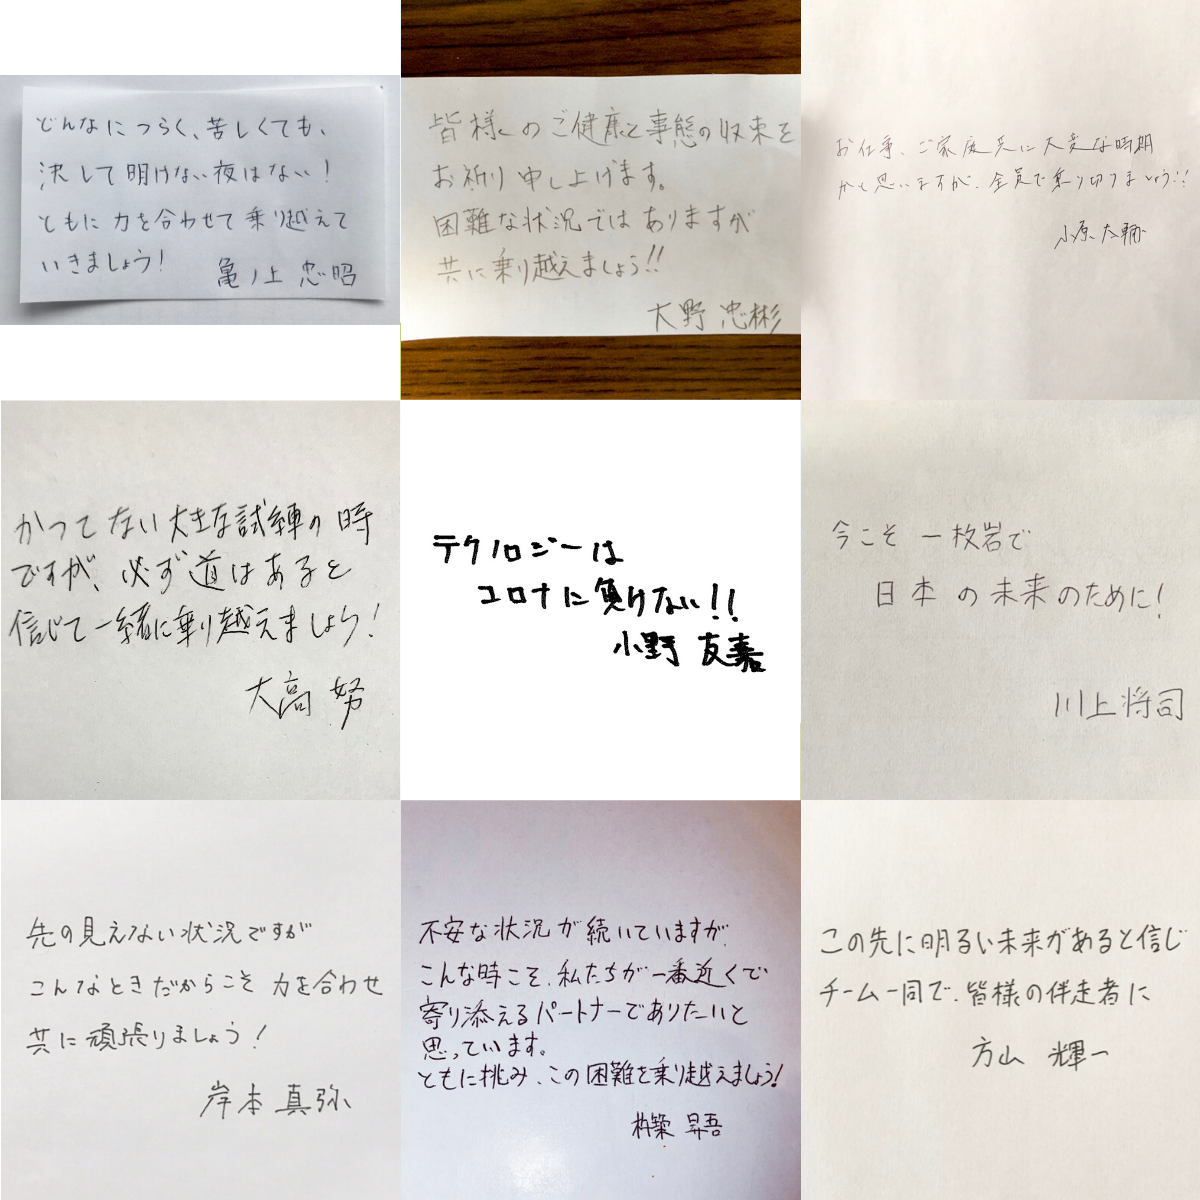 どんなにつらく、苦しくても、
決して明けない夜はない!
ともに力を合わせて乗り越えて
いきましょう!
亀ノ上 忠昭
皆様のご健康と事態の収束を
お祈り申し上げます。
困難な状況ではありますが
共に乗り越えましょう!!
大野 忠彬
お仕事、ご家庭共に大変な時期
かと思いますが、全員で乗り切りましょう!!
小原 大輔
かつてない大きな試練の時
ですが、必ず道はあると
信じて一緒に乗り越えましょう!
大高 努
テクノロジーは
コロナに負けない!!
小野 友嘉
今こそ 一枚岩で
日本の未来のために!
川上 将司
先の見えない状況ですが
こんなときだからこそ 力を合わせ
共に頑張りましょう!
岸本 真弥
不安な状況が続いていますが、
こんな時こそ、私たちが一番近くで
寄り添えるパートナーでありたいと
思っています。
ともに挑み、この困難を乗り越えましょう!
杵築 昇吾
この先に明るい未来があると信じ
チーム一同で、皆様の伴走者に
方山 輝一